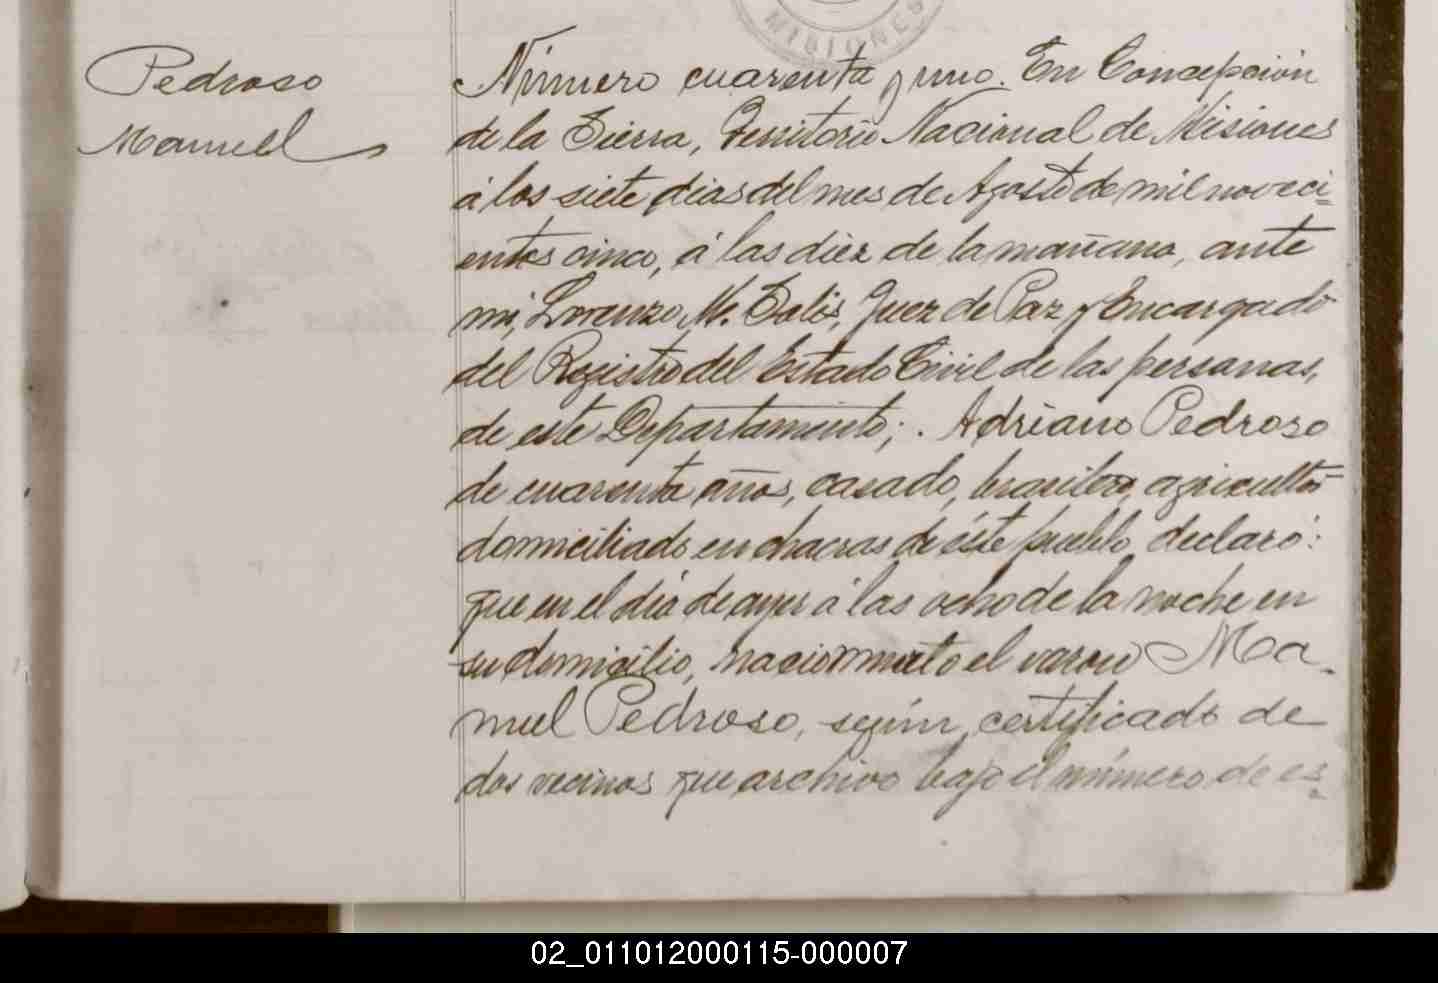 MISIONES
Pedroso
Manuel
Número cuarenta y uno. En Concepción
de la Sierra, Territorio Nacional de Misiones
á los siete dias del mes de Agosto de mil noveci=
entos cinco, á las diez de la mañana, ante
mi, Lorenzo M. Salis, Juez de Paz y Encargado
del Registro del Estado Civil de las personas,
de este Departamento; . Adriano Pedroso
de cuarenta años, casado, brasilero, agricultor
domiciliado en chacras de éste pueblo, declaró:
que en el dia de ayer á las ocho de la noche en
su domicilio, nació el varon Ma-
nuel Pedroso, según certificado de
dos vecinos que archivo bajo el número de es-
02_011012000115-000007